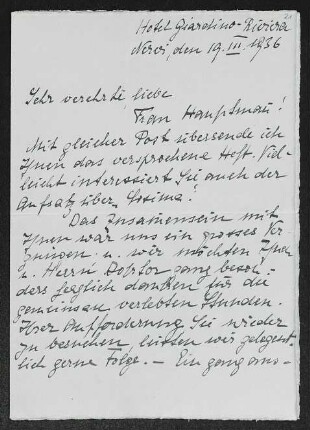 Hotel Giardino-Riviera
Nervi, den 19. III. 1936
Sehr verehrte liebe
Frau Hauptmann!
Mit gleicher Post übersende ich
Ihnen das versprochene Heft. Viel-
leicht interessiert Sie auch der
Aufsatz über
Das Zusammensein mit
Ihnen war uns ein grosses Ver-
gnügen u. wir möchten Ihnen
u. Herrn Doktor ganz beson-
ders herzlich danken für die
gemeinsam verlebten Stunden.
Ihrer Aufforderung Sie wieder
zu besuchen, leisten wir gelegent-
lich gerne Folge. — Ein ganz